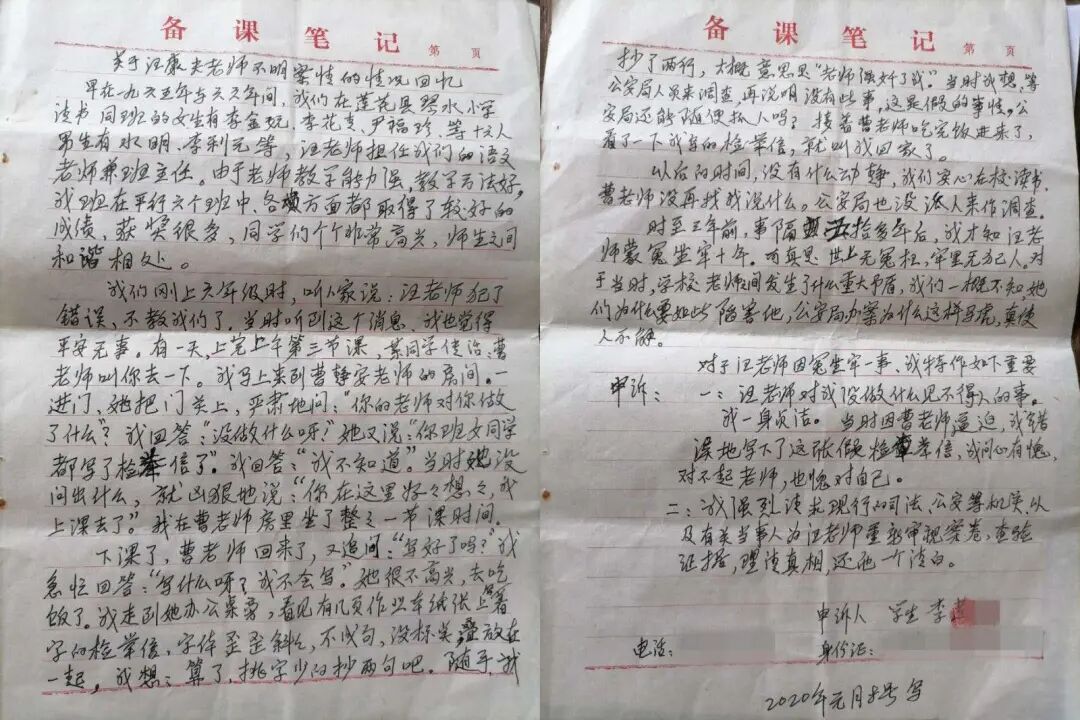 备课笔记
第 页
关于汪康夫老师不明案情的情况回忆
早在一九六五年与六六年间,我们在莲花县琴水小学
读书同班的女生有李金玩、李花喜、尹福珍等十人
男生有 明、李利元等,汪老师担任我们的语文
老师兼班主任。由于老师教学能力强,教学方法好。
我班在平行六个班中、各方面都取得了较好的
成绩,获奖很多,同学们个个非常高兴,师生之间
和谐相处。
我们刚上六年级时,听人家说:汪老师犯了
错误,不教我们了。当时听到这个消息,我也觉得
平安无事。有一天,上完上午第三节课,某同学传话:曹
老师叫你去一下。我马上来到曹静安老师的房间。一
进门,她把门关上,严肃地问:“你的老师对你做
了什么”?我回答:“没做什么呀?”她又说:“你班女同学
都写了检举信了”。我回答:“我不知道”。当时她没
问出什么,就凶狠地说:“你在这里好々想々,我
上课去了。”我在曹老师房里坐了整々一节课时间。
下课了,曹老师回来了,又追问:“写好了吗?”我
急忙回答:“写什么呀?我不会写。”她很不高兴,去吃
饭了。我走到她办公桌旁,看见有几页作业本纸张上署
字的检举信,字体歪歪斜々,不成句,没标点叠放在
一起,我想:算了,挑字少的抄两句吧。随手,我
备课笔记
第 页
抄了两行,大概意思是“老师强奸了我”。当时我想,等
公安局人员来调查,再说明没有些事,这是假的事情。公
安局还能随便抓人吗?接着曹老师吃完饭进来了,
看了一下我写的检举信,就叫我回家了。
以后的时间,没有什么动静,我们安心在校读书,
曹老师没再找我说什么。公安局也没派人来作调查。
时至三年前,事隔五拾多年后,我才知汪老
师蒙冤坐牢十年。可真是世上无冤枉,牢里无犯人。对
于当时,学校老师间发生了什么重大矛盾,我们一概不知,她
们为什么要如此陷害他,公安局办案为什么这样马虎,真使
人不解。
对于汪老师因冤坐牢一事,我特作如下重要
申诉:一:汪老师对我没做什么见不得人的事。
我一身贞洁。当时因曹老师逼迫,我错
误地写下了这张假检举信,我问心有愧,
对不起老师,也愧对自己。
二:我强烈请求现行的司法、公安等机关以
及有关当事人为汪老师重新审视案卷,查验
证据,理清真相,还他一个清白。
申诉人 学生 李
电话:
身份证:
2020年元月8号写